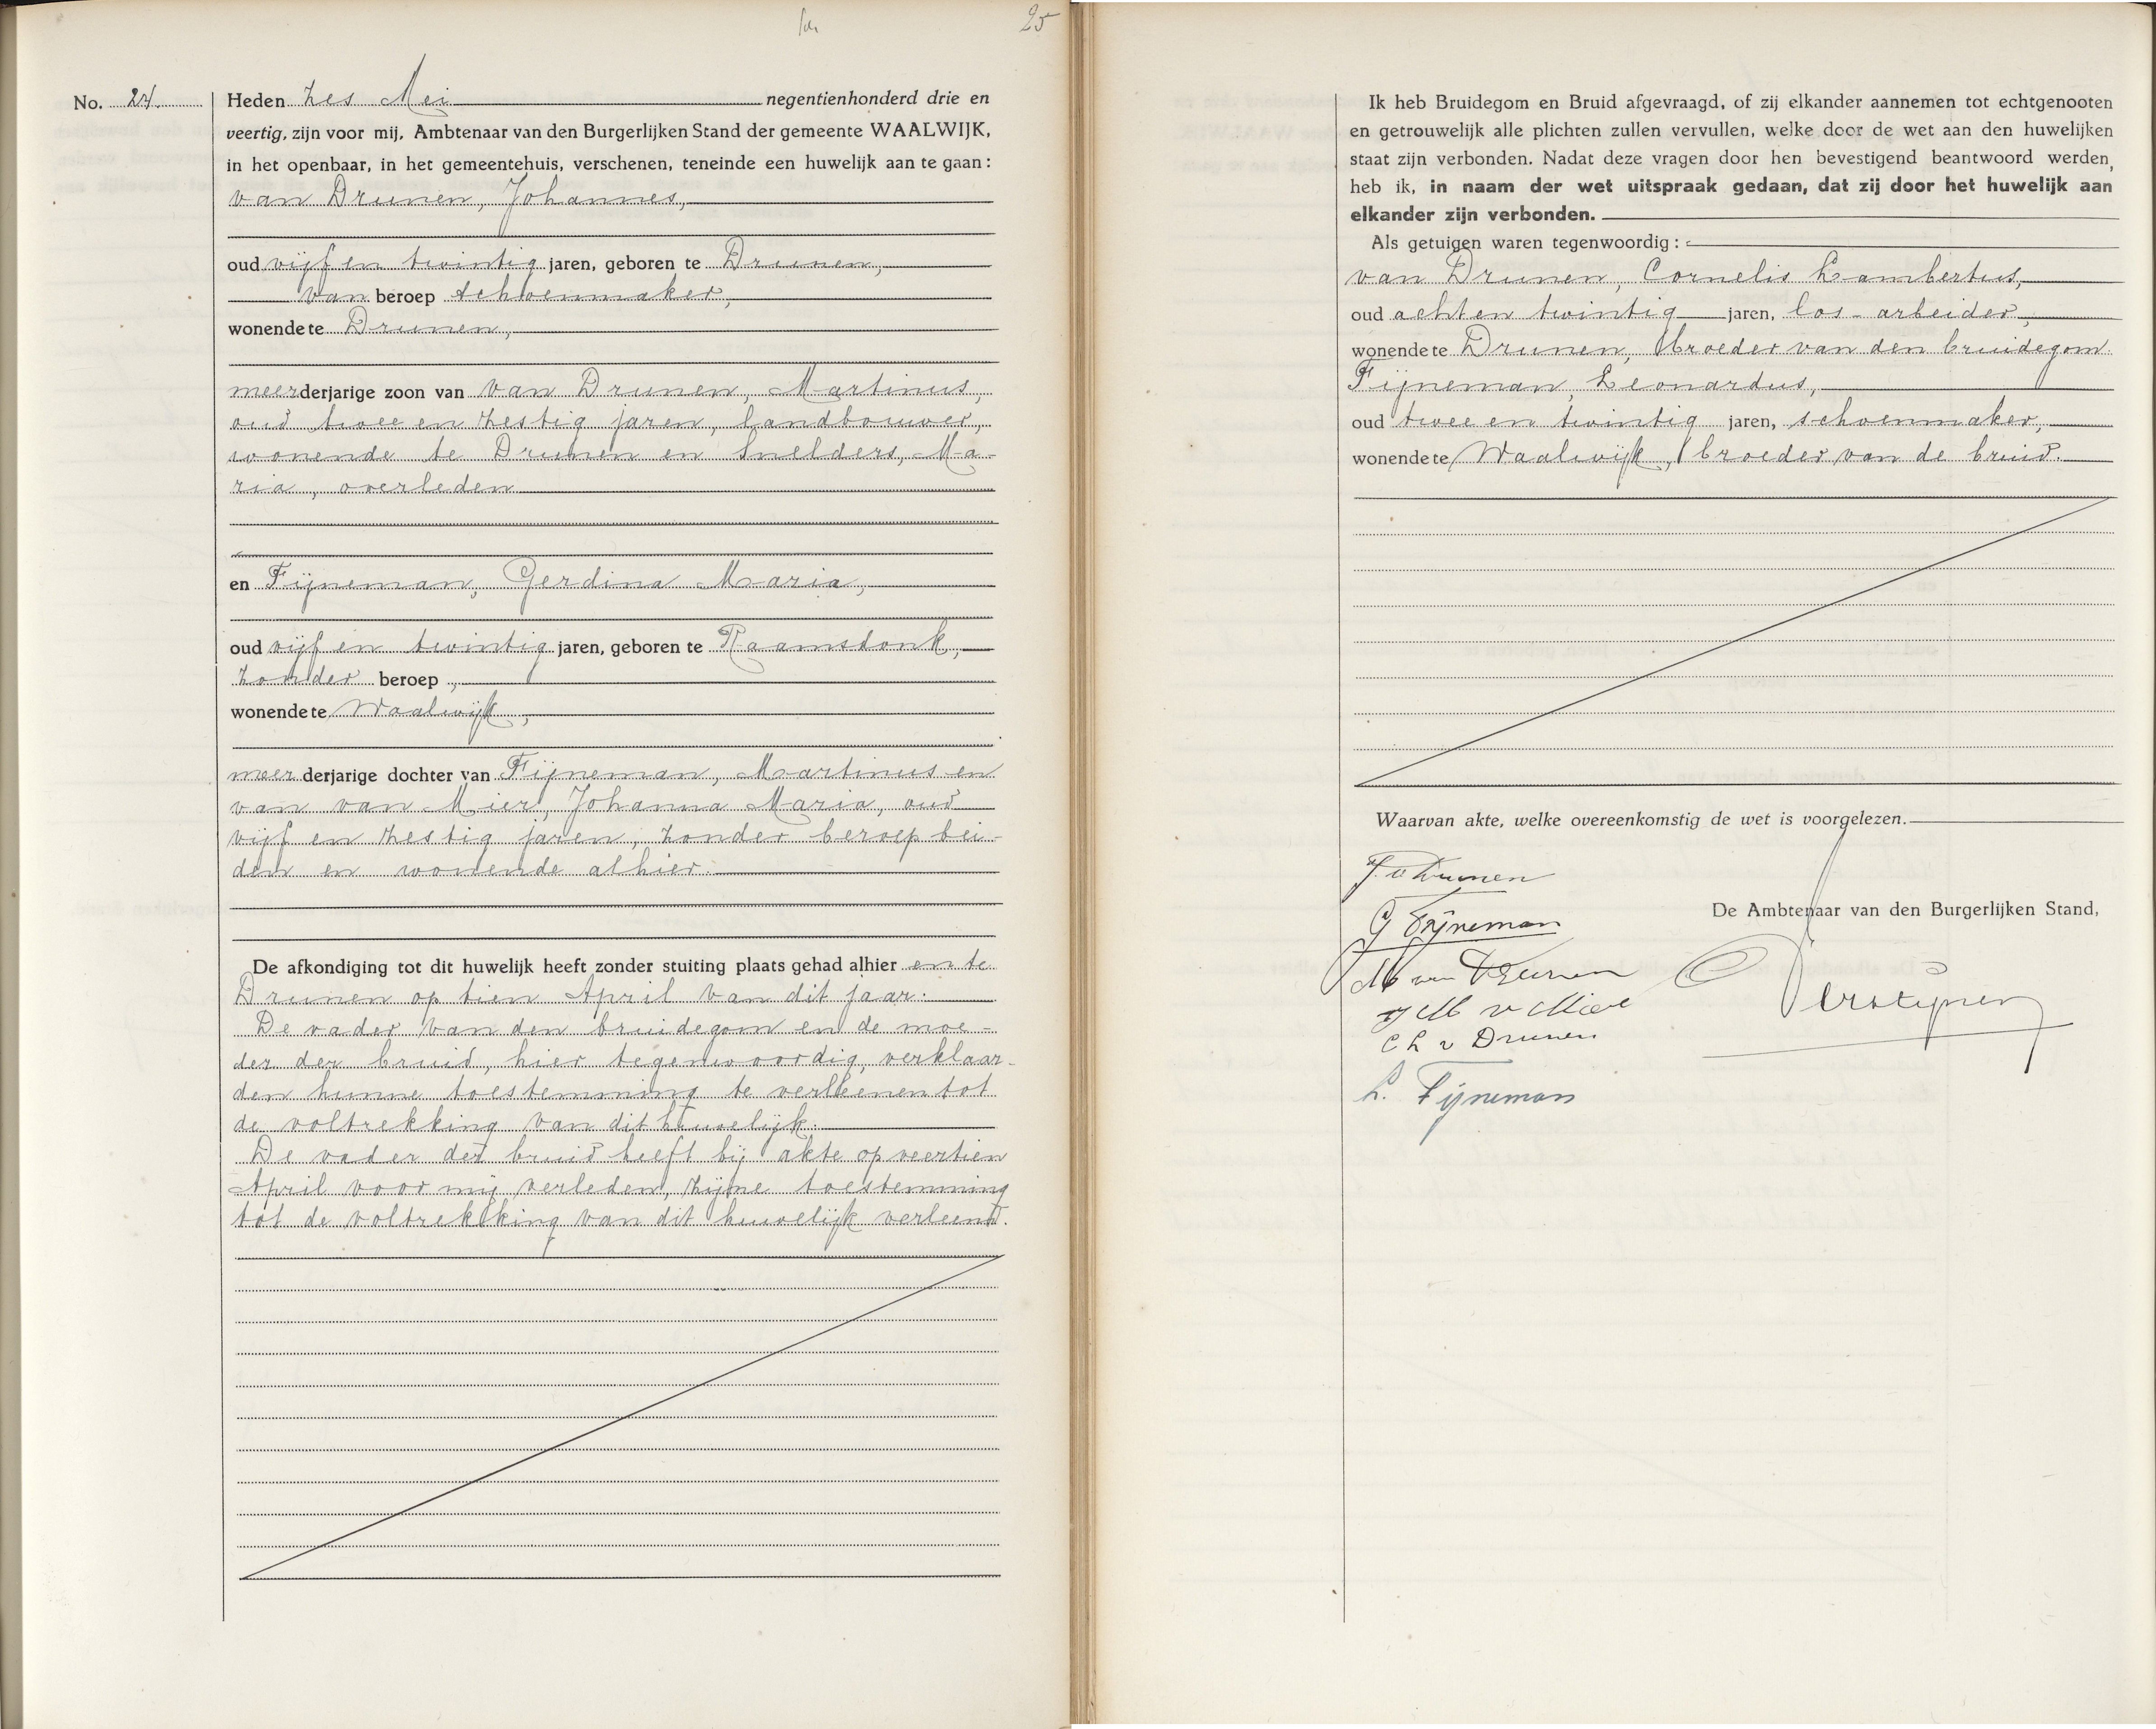 25
No. 24.
Heden zes Mei negentienhonderd drie en
veertig, zijn voor mij, Ambtenaar van den Burgerlijken Stand der gemeente WAALWIJK,
in het openbaar, in het gemeentehuis, verschenen, teneinde een huwelijk aan te gaan:
van Drunen, Johannes,
oud vijf en twintig jaren, geboren te Drunen,
van beroep schoenmaker,
wonende te Drunen,
meerderjarige zoon van van Drunen, Martinus,
oud twee en zestig jaren, landbouwer,
wonende te Drunen en Snelders, Ma-
ria, overleden
en Fijneman, Gerdina Maria,
oud vijf en twintig jaren, geboren te Raamsdonk,
zonder beroep,
wonende te Waalwijk,
meerderjarige dochter van Fijneman, Martinus en
van van Mier, Johanna Maria, oud
vijf en zestig jaren, zonder beroep bei-
den en wonende alhier.
De afkondiging tot dit huwelijk heeft zonder stuiting plaats gehad alhier en te
Drunen op tien April van dit jaar.
De vader van den bruidegom en de moe-
der der bruid, hier tegenwoordig, verklaar-
den hunne toestemming te verleenen tot
de voltrekking van dit huwelijk.
De vader der bruid heeft bij akte op veertien
April voor mij verleden, zijne toestemming
tot de voltrekking van dit huwelijk verleend.
Ik heb Bruidegom en Bruid afgevraagd, of zij elkander aannemen tot echtgenooten
en getrouwelijk alle plichten zullen vervullen, welke door de wet aan den huwelijken
staat zijn verbonden. Nadat deze vragen door hen bevestigend beantwoord werden,
heb ik, in naam der wet uitspraak gedaan, dat zij door het huwelijk aan
elkander zijn verbonden.
Als getuigen waren tegenwoordig:
van Drunen, Cornelis Lambertus,
oud acht en twintig jaren, los-arbeider,
wonende te Drunen, broeder van den bruidegom.
Fijneman, Leonardus,
oud twee en twintig jaren, schoenmaker,
wonende te Waalwijk, broeder van de bruid.
Waarvan akte, welke overeenkomstig de wet is voorgelezen.
J. v Drunen
G Fijneman
De Ambtenaar van den Burgerlijken Stand,
M van Drunen
J M v Mier
C L v Drunen
L. Fijneman